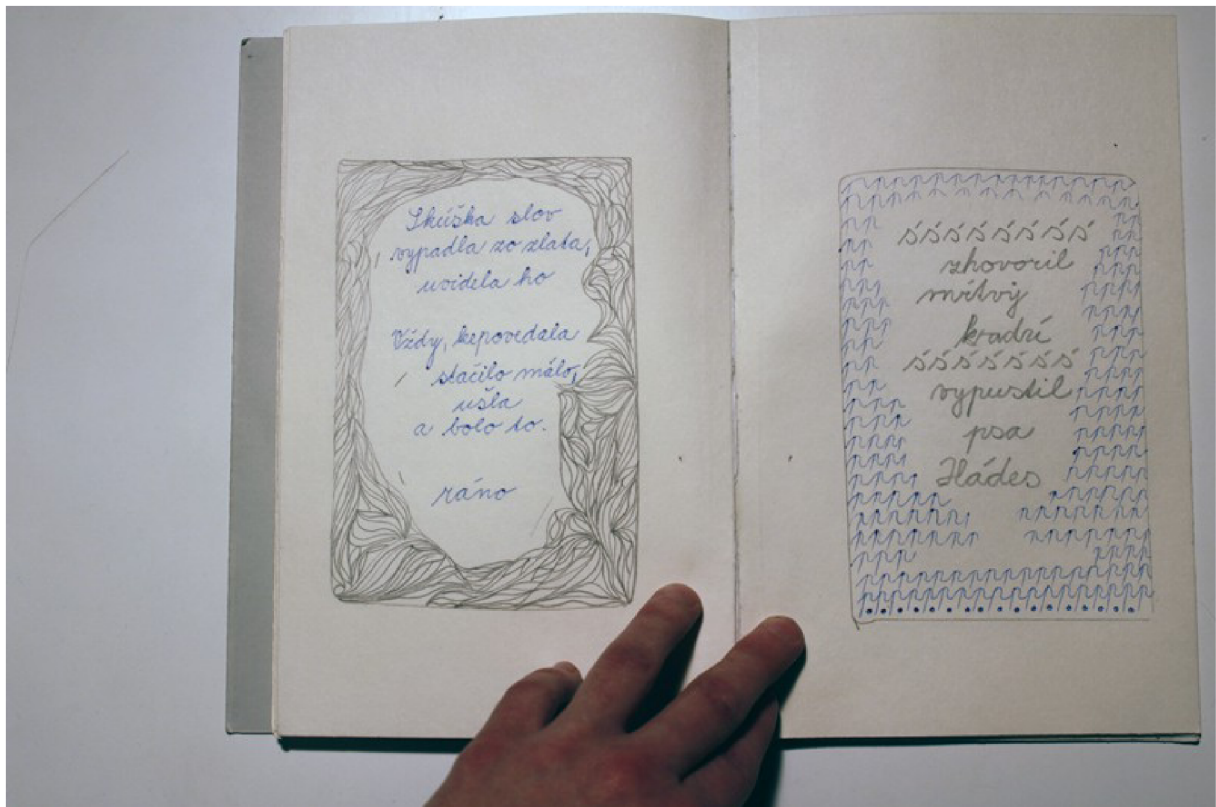 Skúška slov
vypadla zo zlata,
uvidela ho
Vždy, kepovedala
stačilo málo,
ušla
a bolo to.
ráno
śśśśśśśś
zhovoril
mŕtvy
kradzí
śśśśśśś
vypustil
psa
Hádes